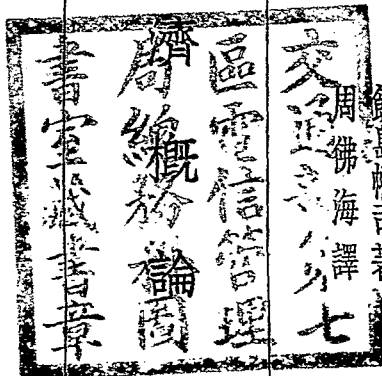 周佛海譯
濟概論
交通部第七
區電信管理
局總務科圖
書室藏書章